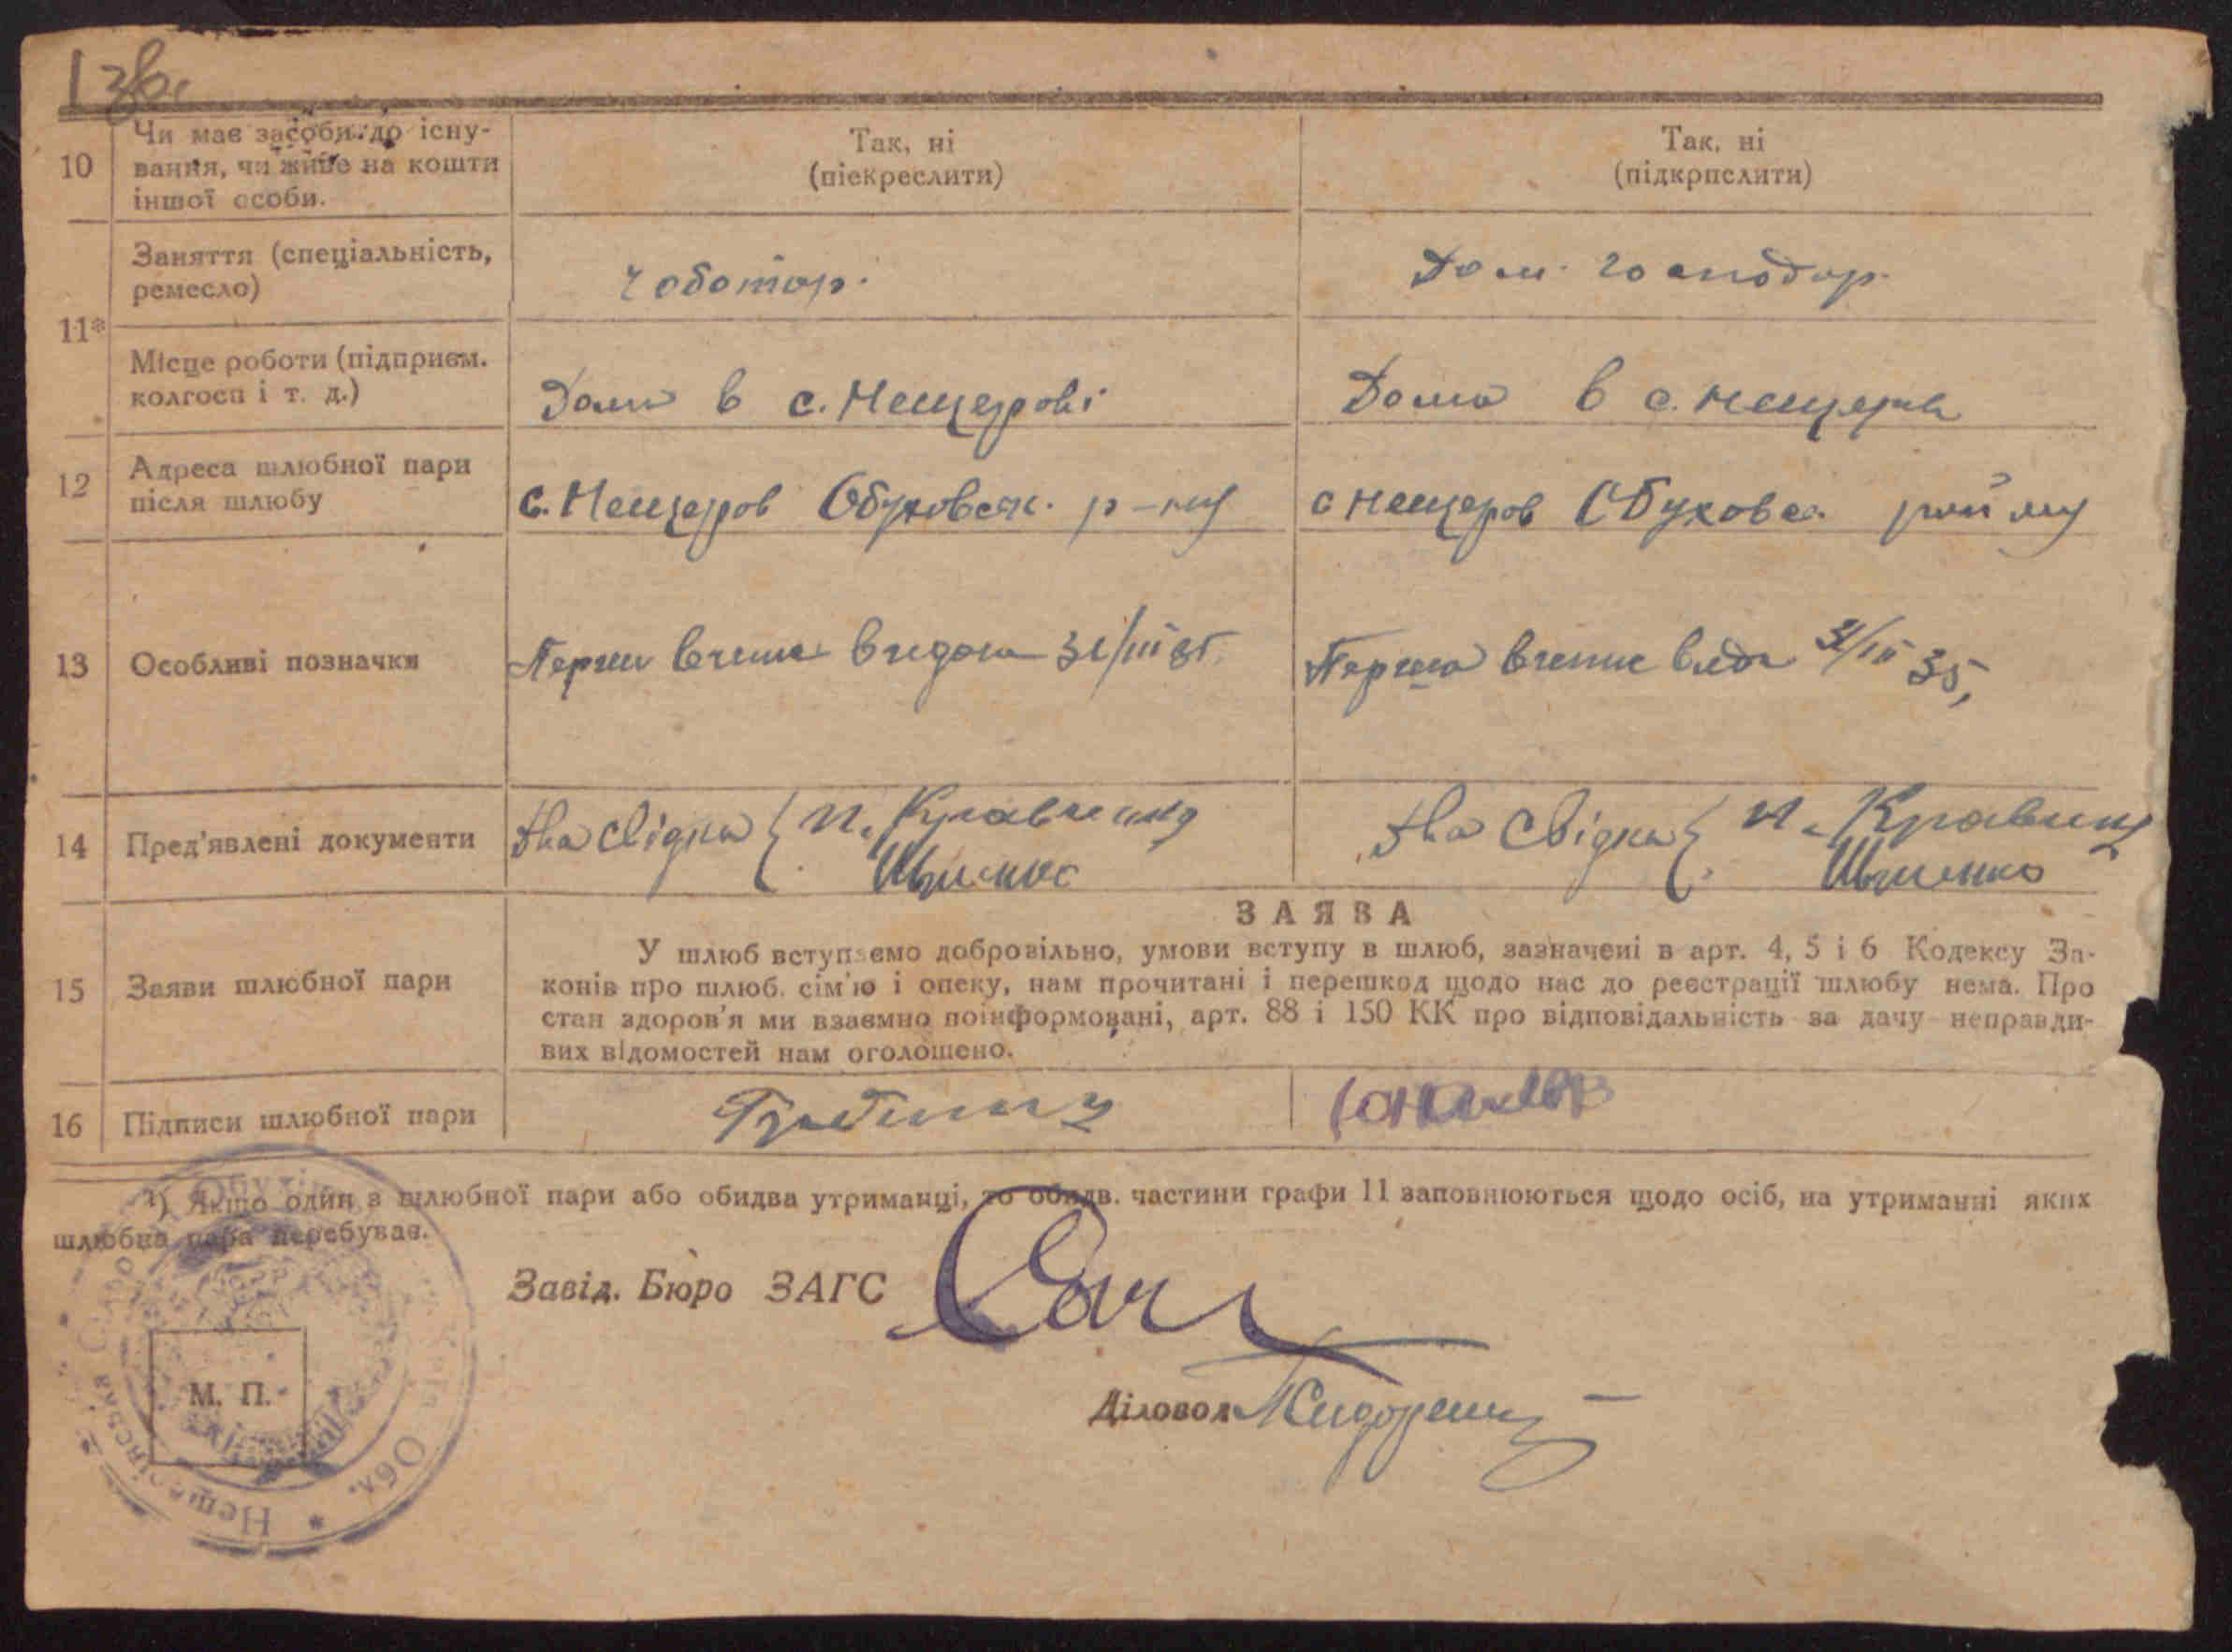 1 зв.
10
Чи має засоби до існу-
вання, чи живе на кошти
іншої особи.
Так, ні
(піекреслити)
Так, ні
(підкрпслити)
11*
Заняття (спеціальність,
ремесло)
чоботар.
Дом. господар.
Місце роботи (підприєм.
колгосп і т. д.)
Дома в с. Нещерові
Дома в с. Нещерів
12
Адреса шлюбної пари
після шлюбу
с. Нещеров Обуховськ. р-ну
с Нещеров Обуховсь. району
13
Особливі позначки
31/III 35,
14
Пред'явлені документи
два свідка { И. Кравченко
два свідка { И. Кравченко
15
Заяви шлюбної пари
ЗАЯВА
У шлюб вступаємо добровільно, умови вступу в шлюб, зазначені в арт. 4, 5 і 6 Кодексу За-
конів про шлюб. сім'ю і опеку, нам прочитані і перешкод щодо нас до реєстрації шлюбу нема. Про
стан здоров'я ми взаємно поінформовані, арт. 88 і 150 КК про відповідальність за дачу неправди-
вих відомостей нам оголошено.
16
Підписи шлюбної пари
¹) Якщо один з шлюбної пари або обидва утриманці, то обидв. частини графи 11 заповнюються щодо осіб, на утриманні яких
шлюбна пара перебуває.
Завід. Бюро ЗАГС
Діловод
М. П.